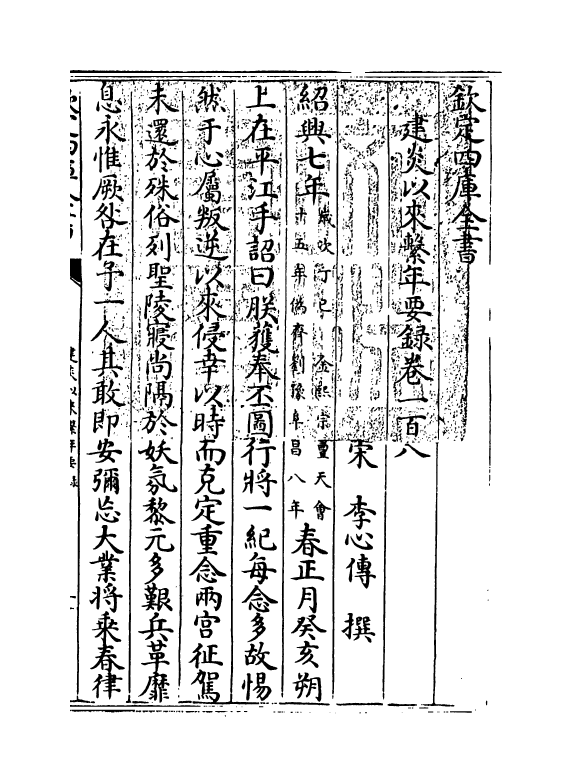 欽定四庫全書
建炎以來繫年要錄卷一百八
宋　李心傳　撰
紹興七年歲次丁巳金熙宗亶天會十五年偽齊劉豫阜昌八年春正月癸亥朔
上在平江手詔曰朕獲奉丕圖行將一紀每念多故惕
然于心屬叛逆以來侵幸以時而克定重念兩宮征駕
未還於殊俗列聖陵寢尚隔於妖氛黎元多艱兵革靡
息永惟厥咎在予一人其敢即安彌忘大業將乘春律
欽定四庫全書
建炎以來繫年要錄